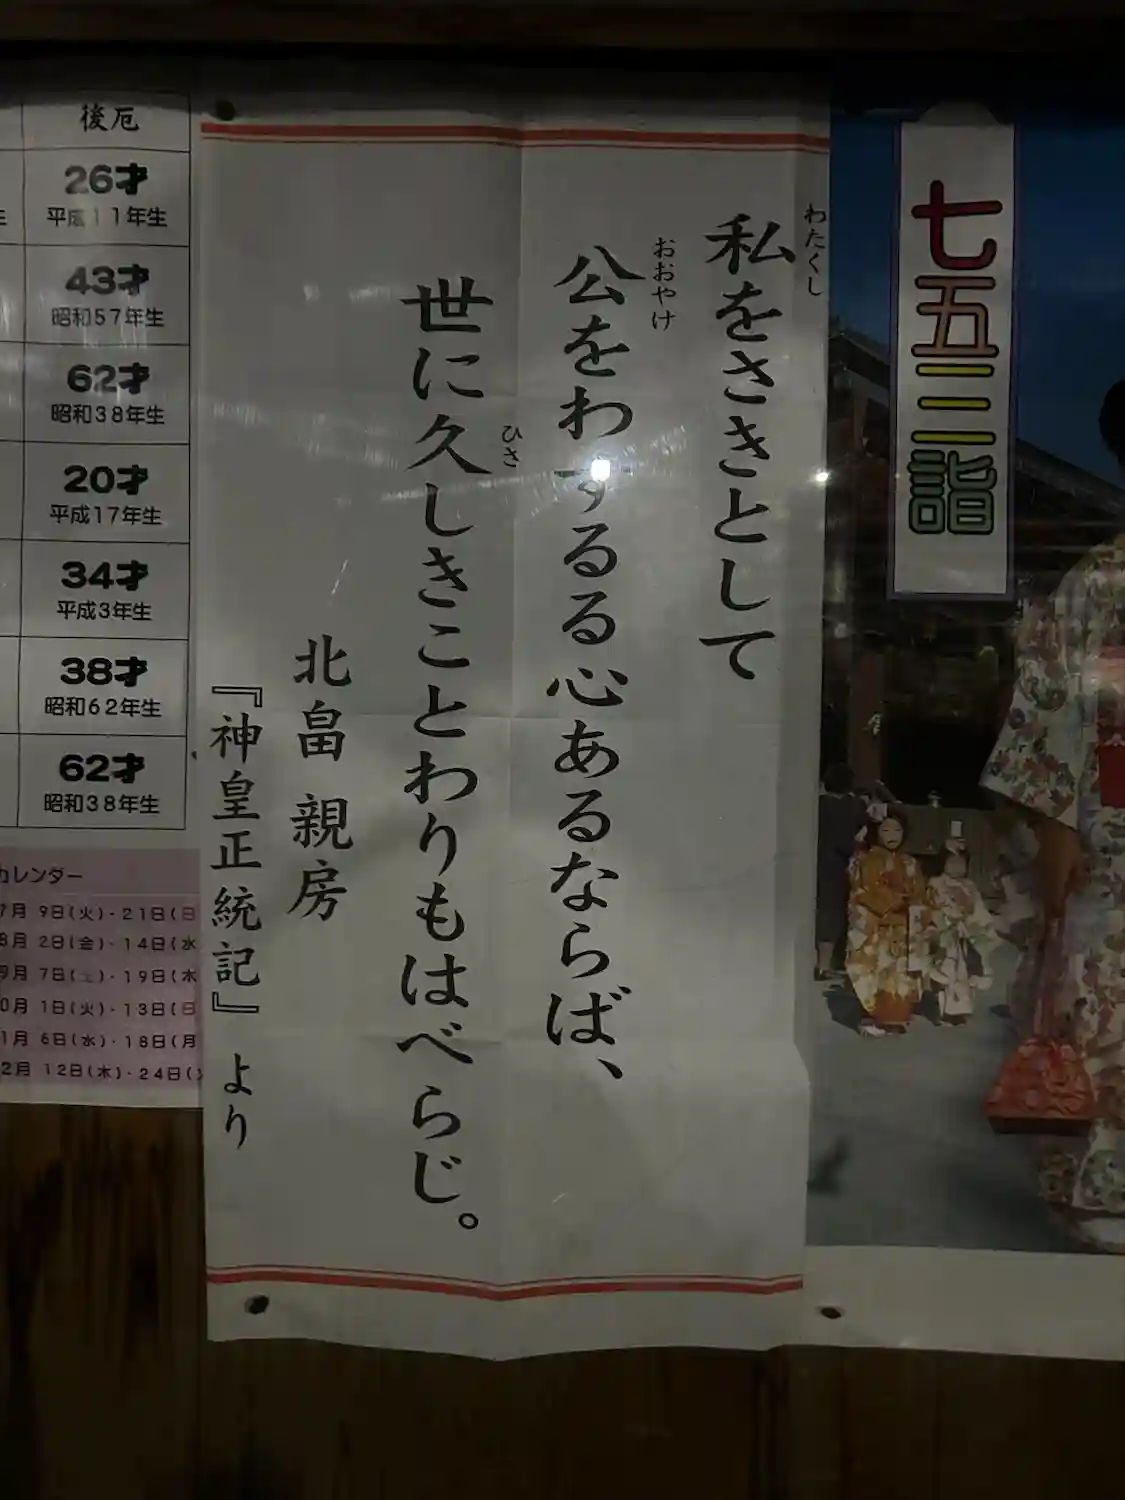 後厄
26才
平成11年生
43才
昭和57年生
62才
昭和38年生
20才
平成17年生
34才
平成3年生
38才
昭和62年生
62才
昭和38年生
カレンダー
7月 9日(火)・21日(日
8月 2日(金)・14日(水
9月 7日(土)・19日(木
0月 1日(火)・13日(日
1月 6日(水)・18日(月
2月 12日(木)・24日(
わたくし
私をさきとして
おおやけ
公をわするる心あるならば、
ひさ
世に久しきことわりもはべらじ。
北畠 親房
『神皇正統記』より
七五三詣